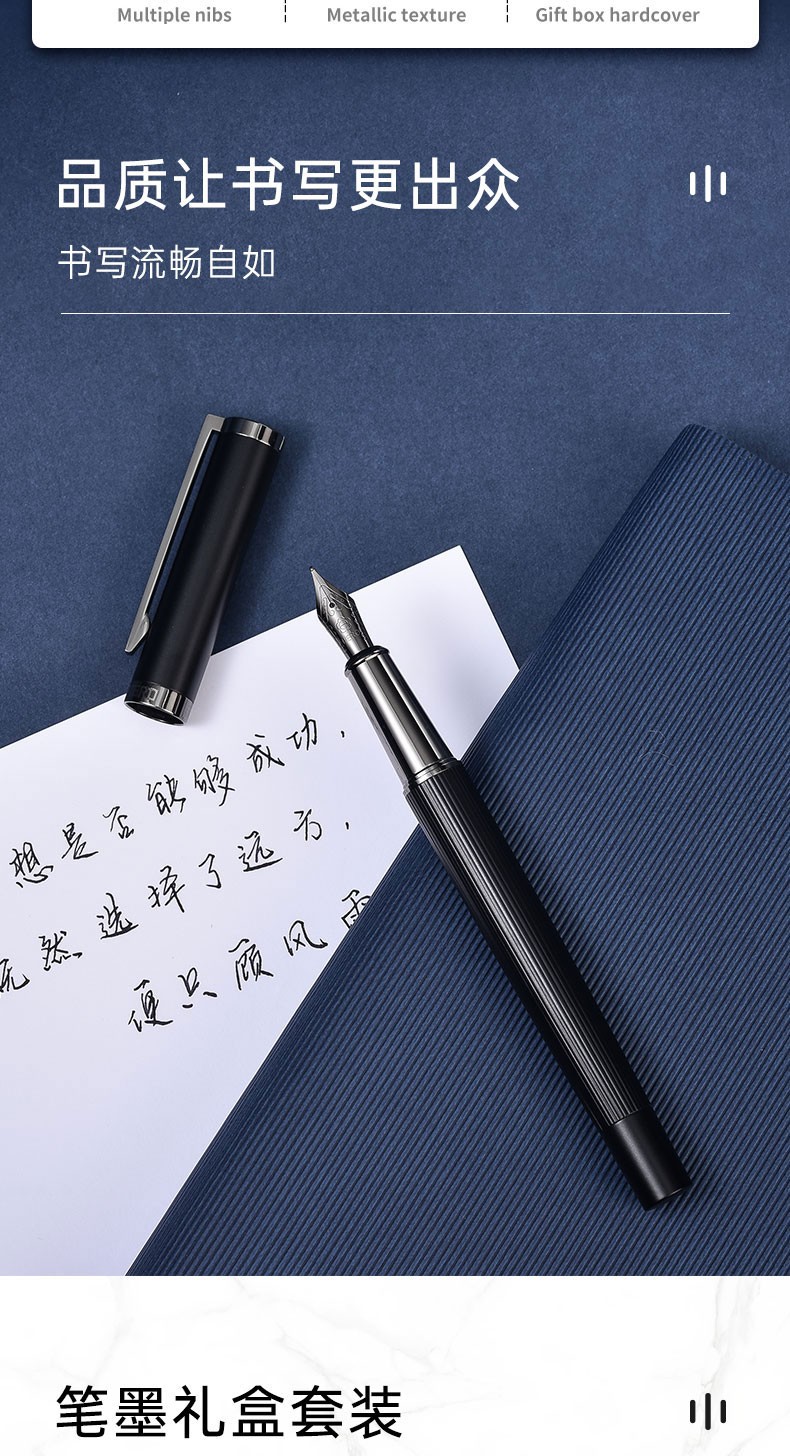 Multiple nibs
Metallic texture
Gift box hardcover
品质让书写更出众
书写流畅自如
想是否能够成功,
既然选择了远方,
便只顾风雨
笔墨礼盒套装